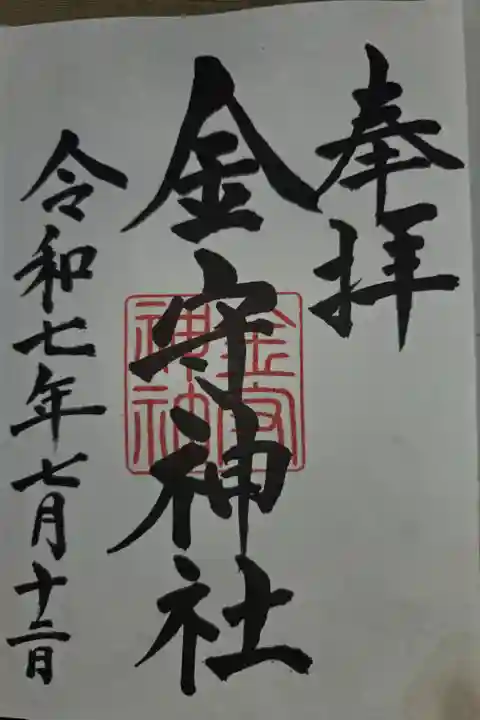 奉拝
金守神社
金守神社
令和七年七月十二日